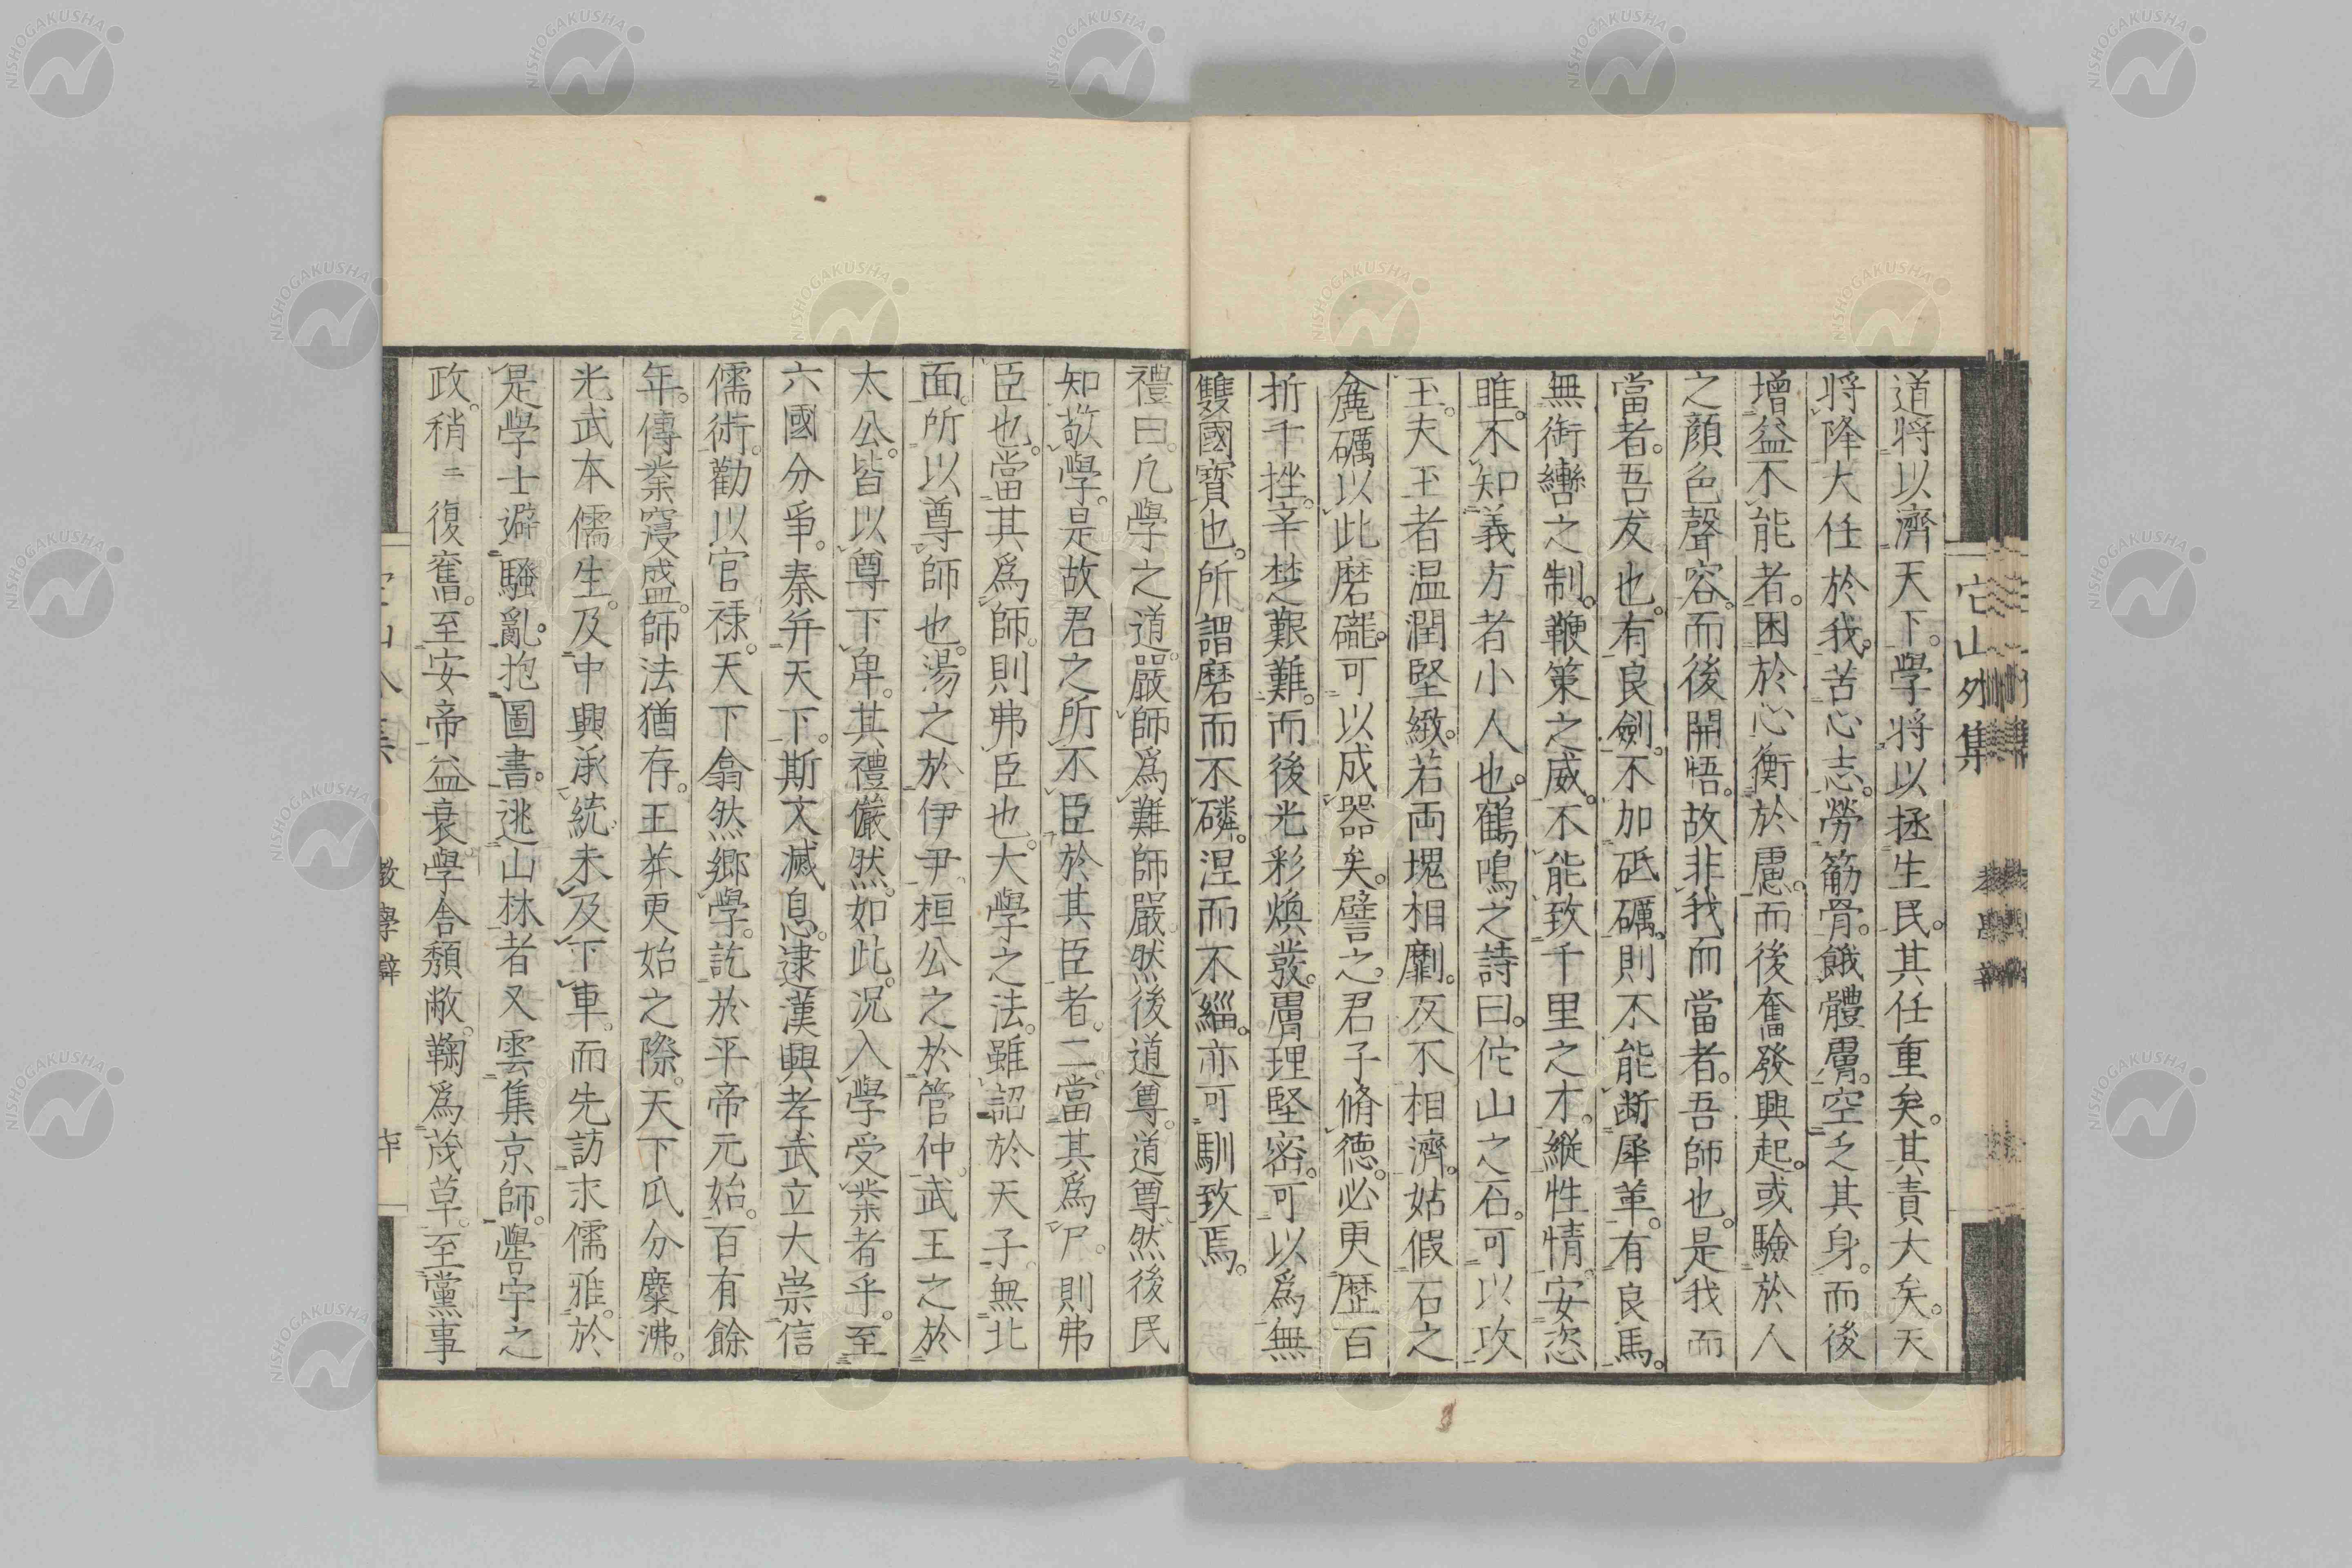 它山外集
道將以濟天下。學將以拯生民。其任重矣。其責大矣。天
將降大任於我。苦心志。勞筋骨。餓體膚。空乏其身。而後
增益不能者。困於心衡於慮。而後奮發興起。或驗於人
之顏色聲容。而後開悟。故非我而當者。吾師也。是我而
當者。吾友也。有良劍。不加砥礪。則不能斷犀革。有良馬。
無銜轡之制。鞭策之威。不能致千里之才。縱性情。安恣
雎。不知義方者小人也。鶴鳴之詩曰。佗山之石。可以攻
玉。夫玉者温潤堅緻。若両塊相劘。反不相濟。姑假石之
麁礪以此磨礲。可以成器矣。譬之。君子脩德。必更歷百
折千挫。辛楚艱難。而後光彩煥發。膚理堅密。可以爲無
雙國寳也。所謂磨而不磷。涅而不緇。亦可馴致焉。
禮曰。凡學之道。嚴師爲難師嚴。然後道尊。道尊然後民
知敬學。是故君之所不臣於其臣者。二當其爲尸。則弗
臣也。當其爲師。則弗臣也。大學之法。雖詔於天子。無北
面。所以尊師也。湯之於伊尹。桓公之於管仲。武王之於
太公。皆以尊下卑。其禮儼然。如此。况入學受業者乎。至
六國分爭。秦并天下。斯文滅息。逮漢興孝武立大崇信
儒術。勸以官祿。天下翕然鄉學。訖於平帝元始。百有餘
年。傳業寖盛。師法猶存。王莽更始之際。天下瓜分麋沸。
光武本儒生。及中興承統。未及下車。而先訪求儒雅。於
是學士避騷亂。抱圖書。逃山林者又雲集京師。黌宇之
政。稍〻復舊。至安帝益衰。學舍頽敝。鞠爲茂草。至黨事
敎學辯
NISHOGAKUSHA